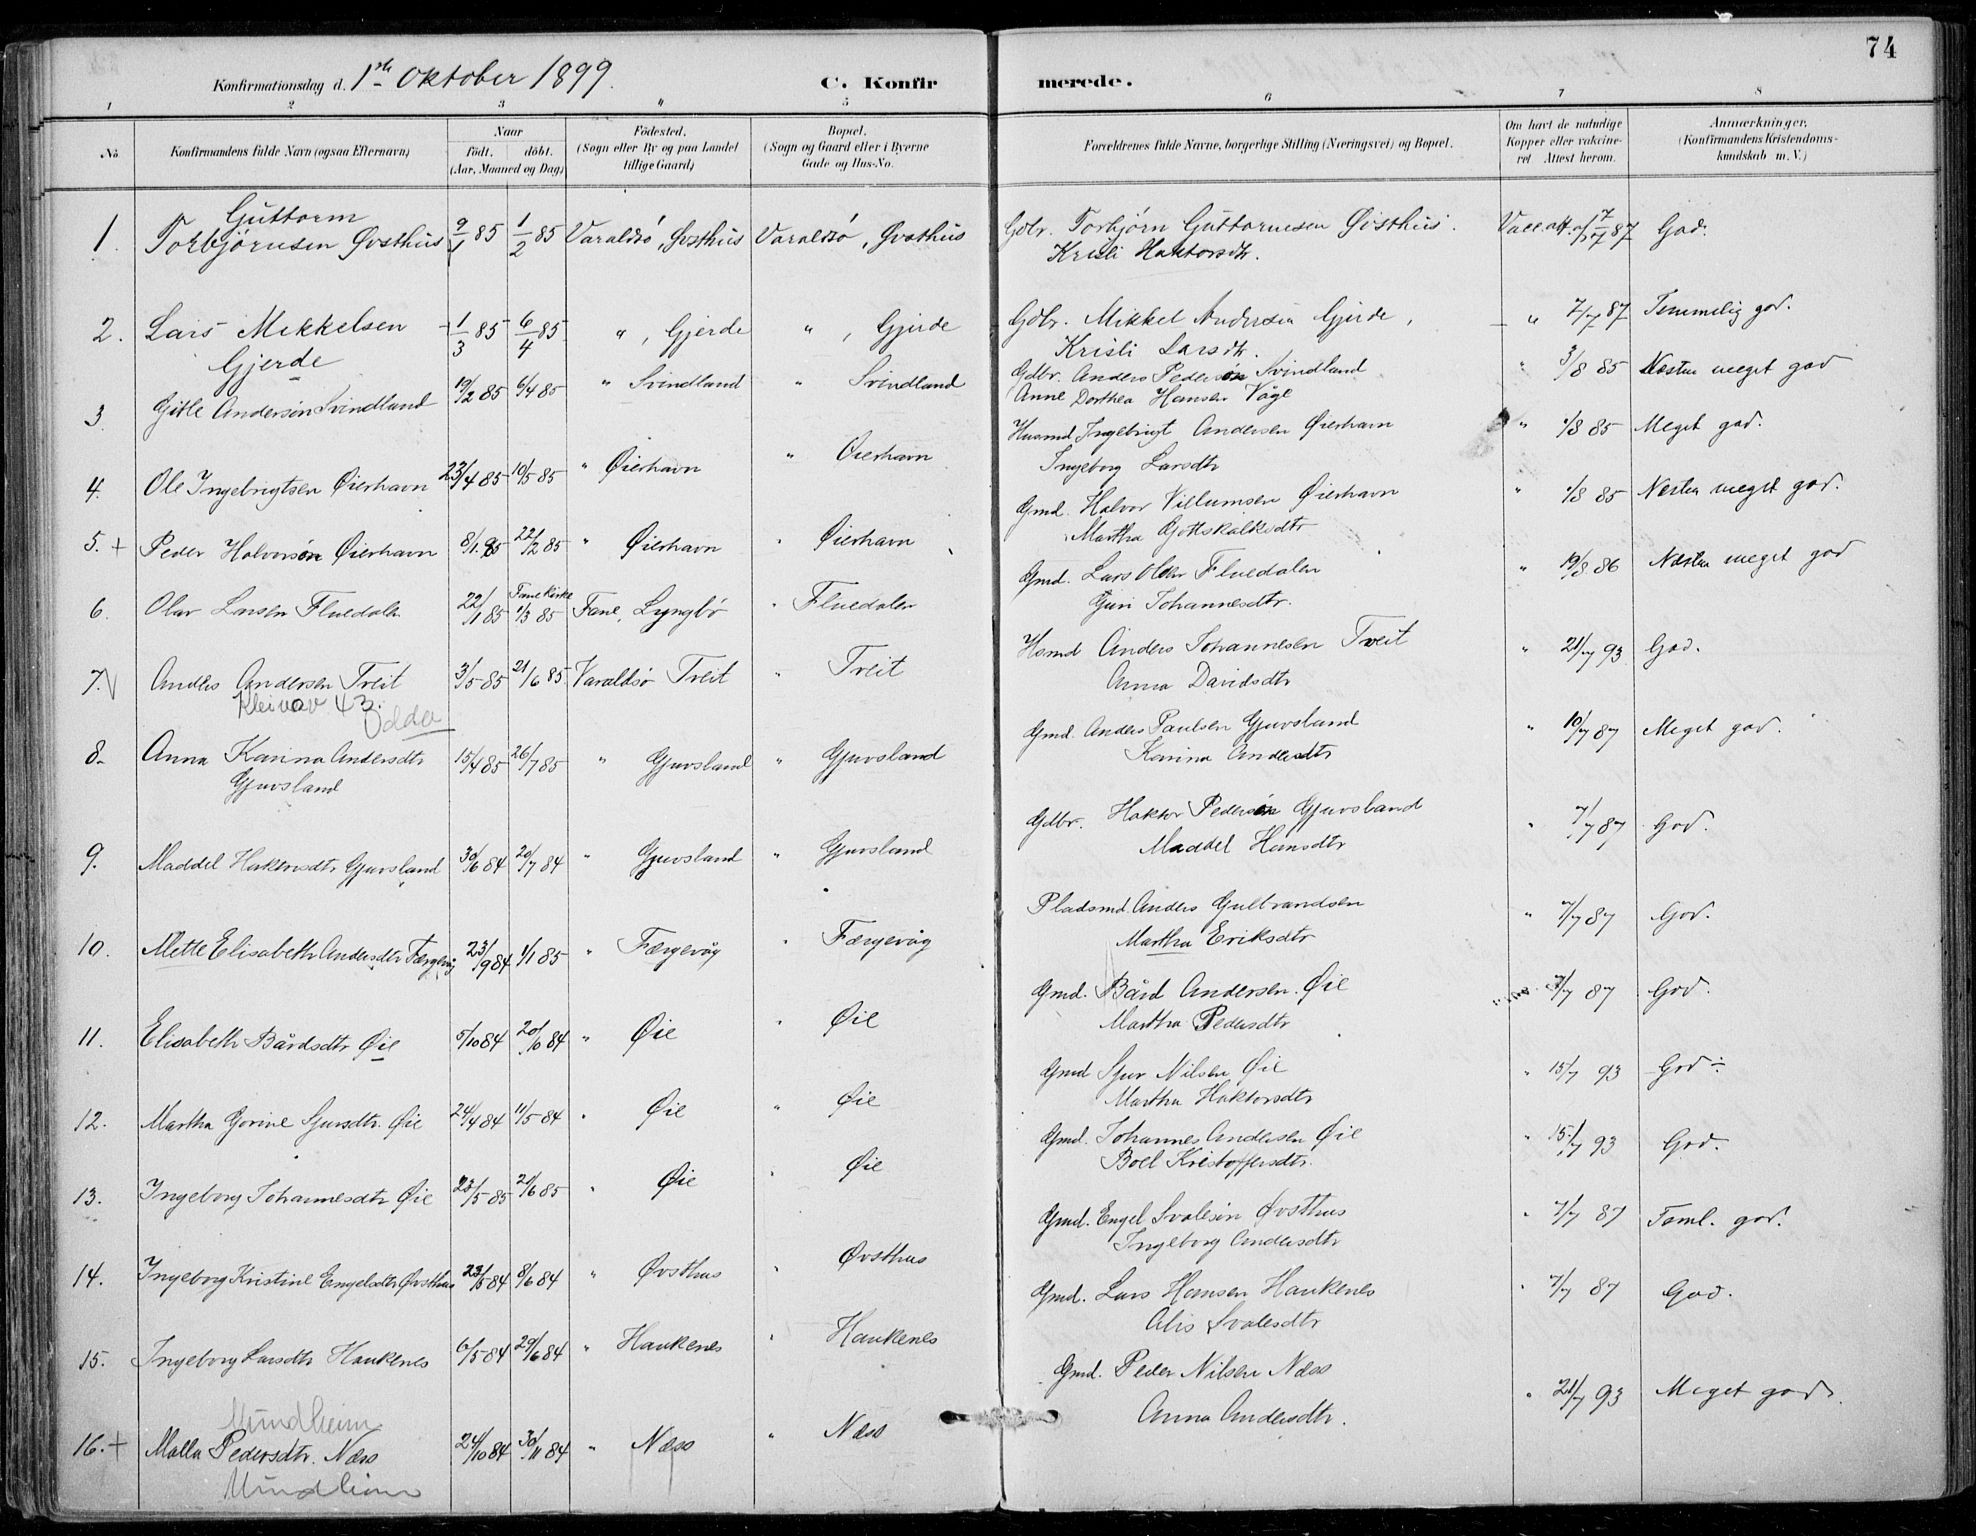 74
Konfirmationsdag d. 1ste Oktober 1899. C. Konfirmerede.
1 2 3 4 5 6 7 8
No
Konfirmandens fulde Navn (ogsaa Efternavn)
Naar
födt. döbt.
(Aar, Maaned og Dag)
Födested.
(Sogn eller By og paa Landet
tillige Gaard)
Bopæl.
(Sogn og Gaard eller i Byerne
Gade og Hus-No.
Forældrenes fulde Navne, borgerlige Stilling (Næringsvei) og Bopæl.
Om havt de naturlige
Kopper eller vakcine-
ret Attest herom.
Anmærkninger.
(Konfirmandens Kristendoms-
kundskab m. V.)
Guttorm
1. Torbjørnsen Øvsthus 9/1 85 1/2 85 Varaldsö, Øvsthus Varaldsö, Øvsthus Gdbr. Torbjørn Guttormsen Øvsthus. Vacc. att. 7/7 87 God.
Kristi Haktorsdtr.
2. Lars Mikkelsen 1/3 85 6/4 85 " , Gjerde " , Gjerde Gdbr. Mikkel Andersen Gjerde, " 7/7 87 Temmelig god.
Gjerde Kristi Larsdtr.
3. Gitle Andersøn Svindland 19/2 85 6/4 85 " Svindland " Svindland Gdbr. Anders Pedersøn Svindland " 3/8 85 Næsten meget god
Anne Dorthea Hansen Våge
4. Ole Ingebrigtsen Øierhavn 23/4 85 10/5 85 " Øierhavn " Øierhavn Husmd Ingebrigt Andersen Øierhavn " 1/8 85 Meget god.
Ingeborg Larsdtr
5. + Peder Halvorsøn Øierhavn 8/1 85 22/2 85 " Øierhavn " Øierhavn Gmd. Halvor Villumsen Øierhavn " 1/8 85 Næsten meget god.
Martha Gottskalksdtr
6. Olav Larsen Fluedalen 22/1 85 Fane Kirke 1/3 85 Fane, Lyngbö " Fluedalen Gmd. Lars Olsen Fluedalen " 19/8 86 Næsten meget god
Guri Johannesdtr.
7. Anders Andersen Treit 3/5 85 21/6 85 Varaldsö Treit " Treit Hsmd Anders Johannesen Treit " 21/7 93 God.
43. Odda Anna Davidsdtr
8. Anna Karina Andersdtr 15/4 85 26/7 85 " Gjuvsland " Gjuvsland Gmd. Anders Paulsen Gjuvsland " 10/7 87 Meget god.
Gjuvsland Karina Andersdtr
9. Maddel Haktorsdtr Gjuvsland 30/6 84 20/7 84 " Gjuvsland " Gjuvsland Gdbr. Haktor Pedersøn Gjuvsland " 7/7 87 God.
Maddel Hansdtr
10. Mette Elisabeth Andersdtr Færgevåg 23/9 84 1/1 85 " Færgevåg " Færgevåg Pladsmd. Anders Gulbrandsen " 7/7 87 God.
Martha Eriksdtr
11. Elisabeth Bårdsdtr Øie 5/10 84 20/10 84 " Øie " Øie Gmd. Bård Andersen Øie 7/7 87 God.
Martha Pedersdtr
12. Martha Gorine Sjursdtr. Øie 24/4 84 11/5 84 " Øie " Øie Gmd Sjur Nilsen Øie " 15/7 93 God ÷
Martha Haktorsdtr
13. Ingeborg Johannesdtr Øie 23/5 85 21/6 85 " Øie " Øie Gmd. Johannes Andersen Øie " 15/7 93 God.
Boel Kristoffersdtr.
14. Ingeborg Kristine Engelsdtr Øvsthus 23/5 84 8/6 84 " Øvsthus " Øvsthus Gmd. Engel Svalesøn Øvsthus " 7/7 87 Teml. god.
Ingeborg Andersdtr
15. Ingeborg Larsdtr Haukenes 6/5 84 29/6 84 " Haukenes " Haukenes Gmd. Lars Hansen Haukenes " 7/7 87 God.
Alis Svalesdtr
Mundheim
16. + Malla Pedersdtr. Næss 24/10 84 30/11 84 " Næss " Næss Gmd. Peder Nilsen Næss " 21/7 93 Meget god
Mundheim Anna Andersdtr.